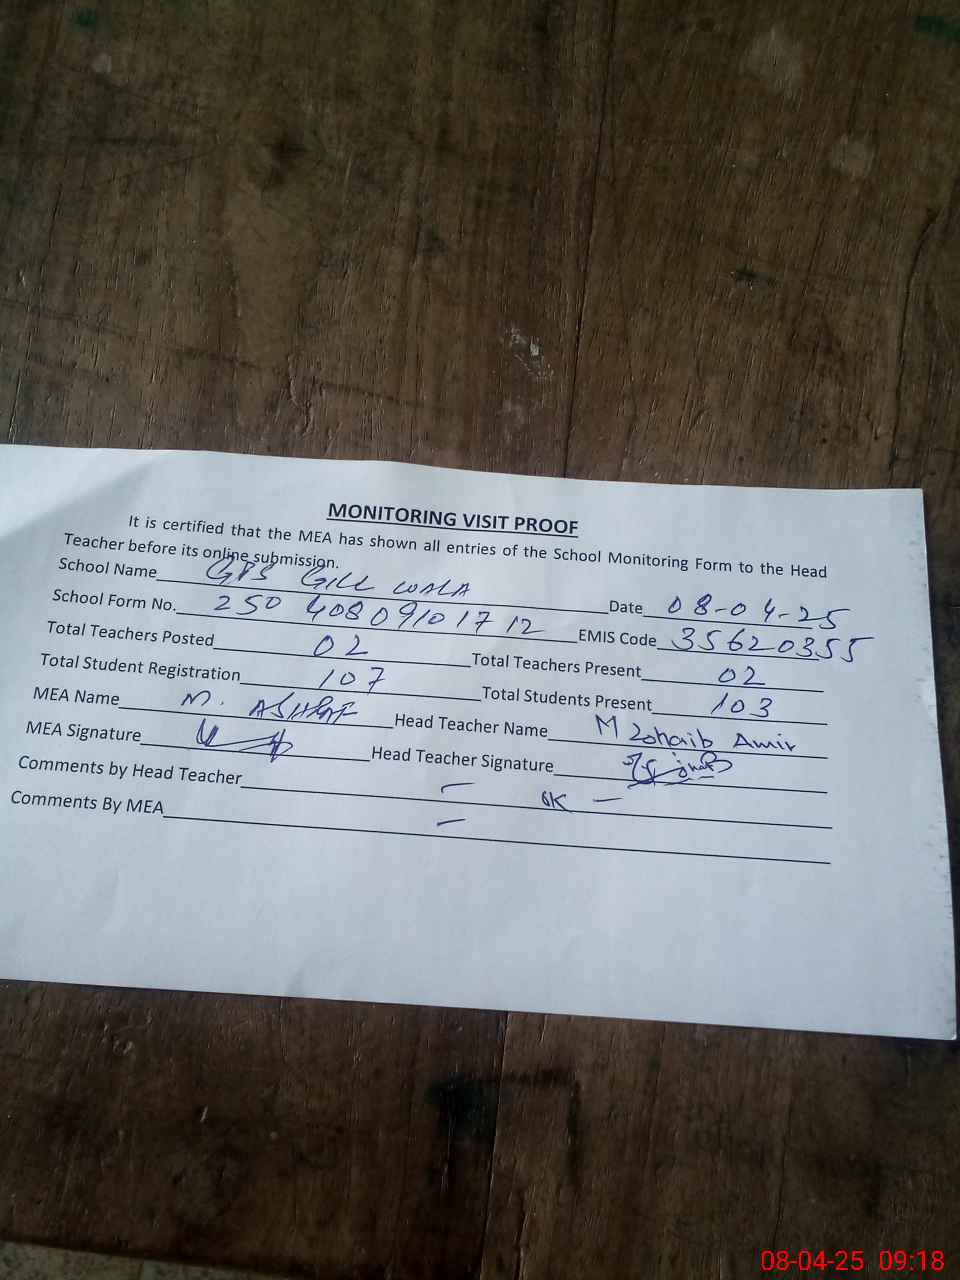 MONITORING VISIT PROOF
It is certified that the MEA has shown all entries of the School Monitoring Form to the Head
Teacher before its online submission.
School Name GPS GILL WALA Date 08-04-25
School Form No. 250 408091017 12 EMIS Code 35620355
Total Teachers Posted 02 Total Teachers Present 02
Total Student Registration 107 Total Students Present 103
MEA Name M. ASHRAF Head Teacher Name M Zohaib Amir
MEA Signature Head Teacher Signature
Comments by Head Teacher — OK —
Comments By MEA —
08-04-25 09:18